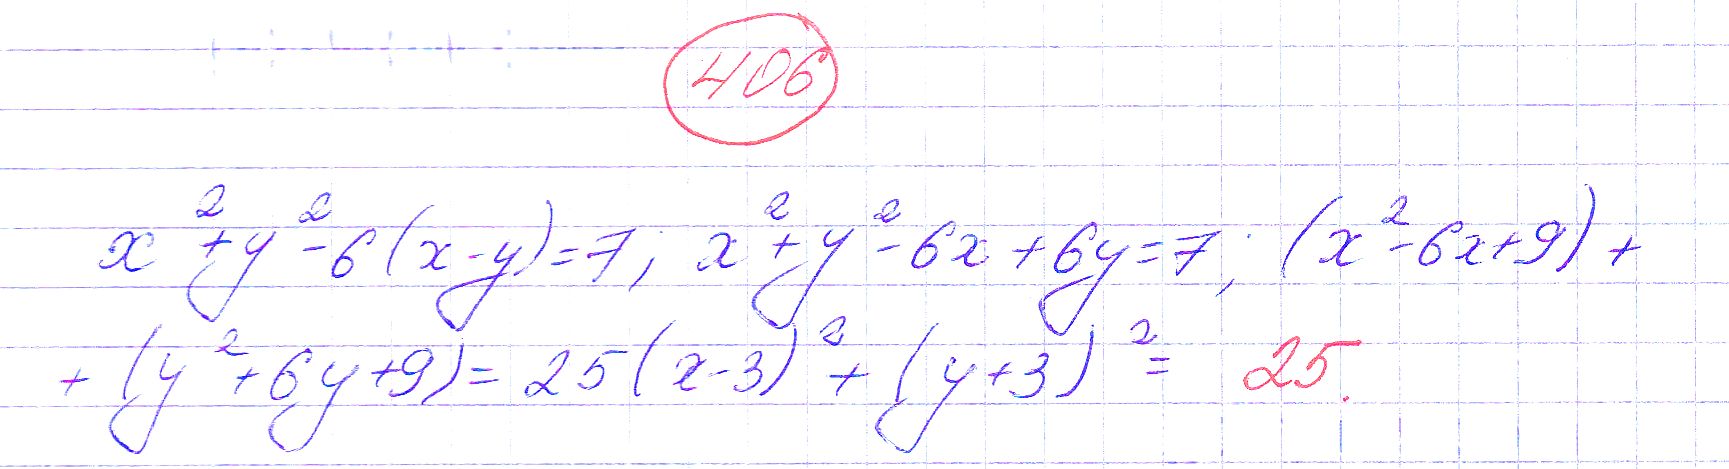 406
x²+y²-6(x-y)=7; x²+y²-6x+6y=7; (x²-6x+9)+
+(y²+6y+9)=25(x-3)²+(y+3)²= 25.